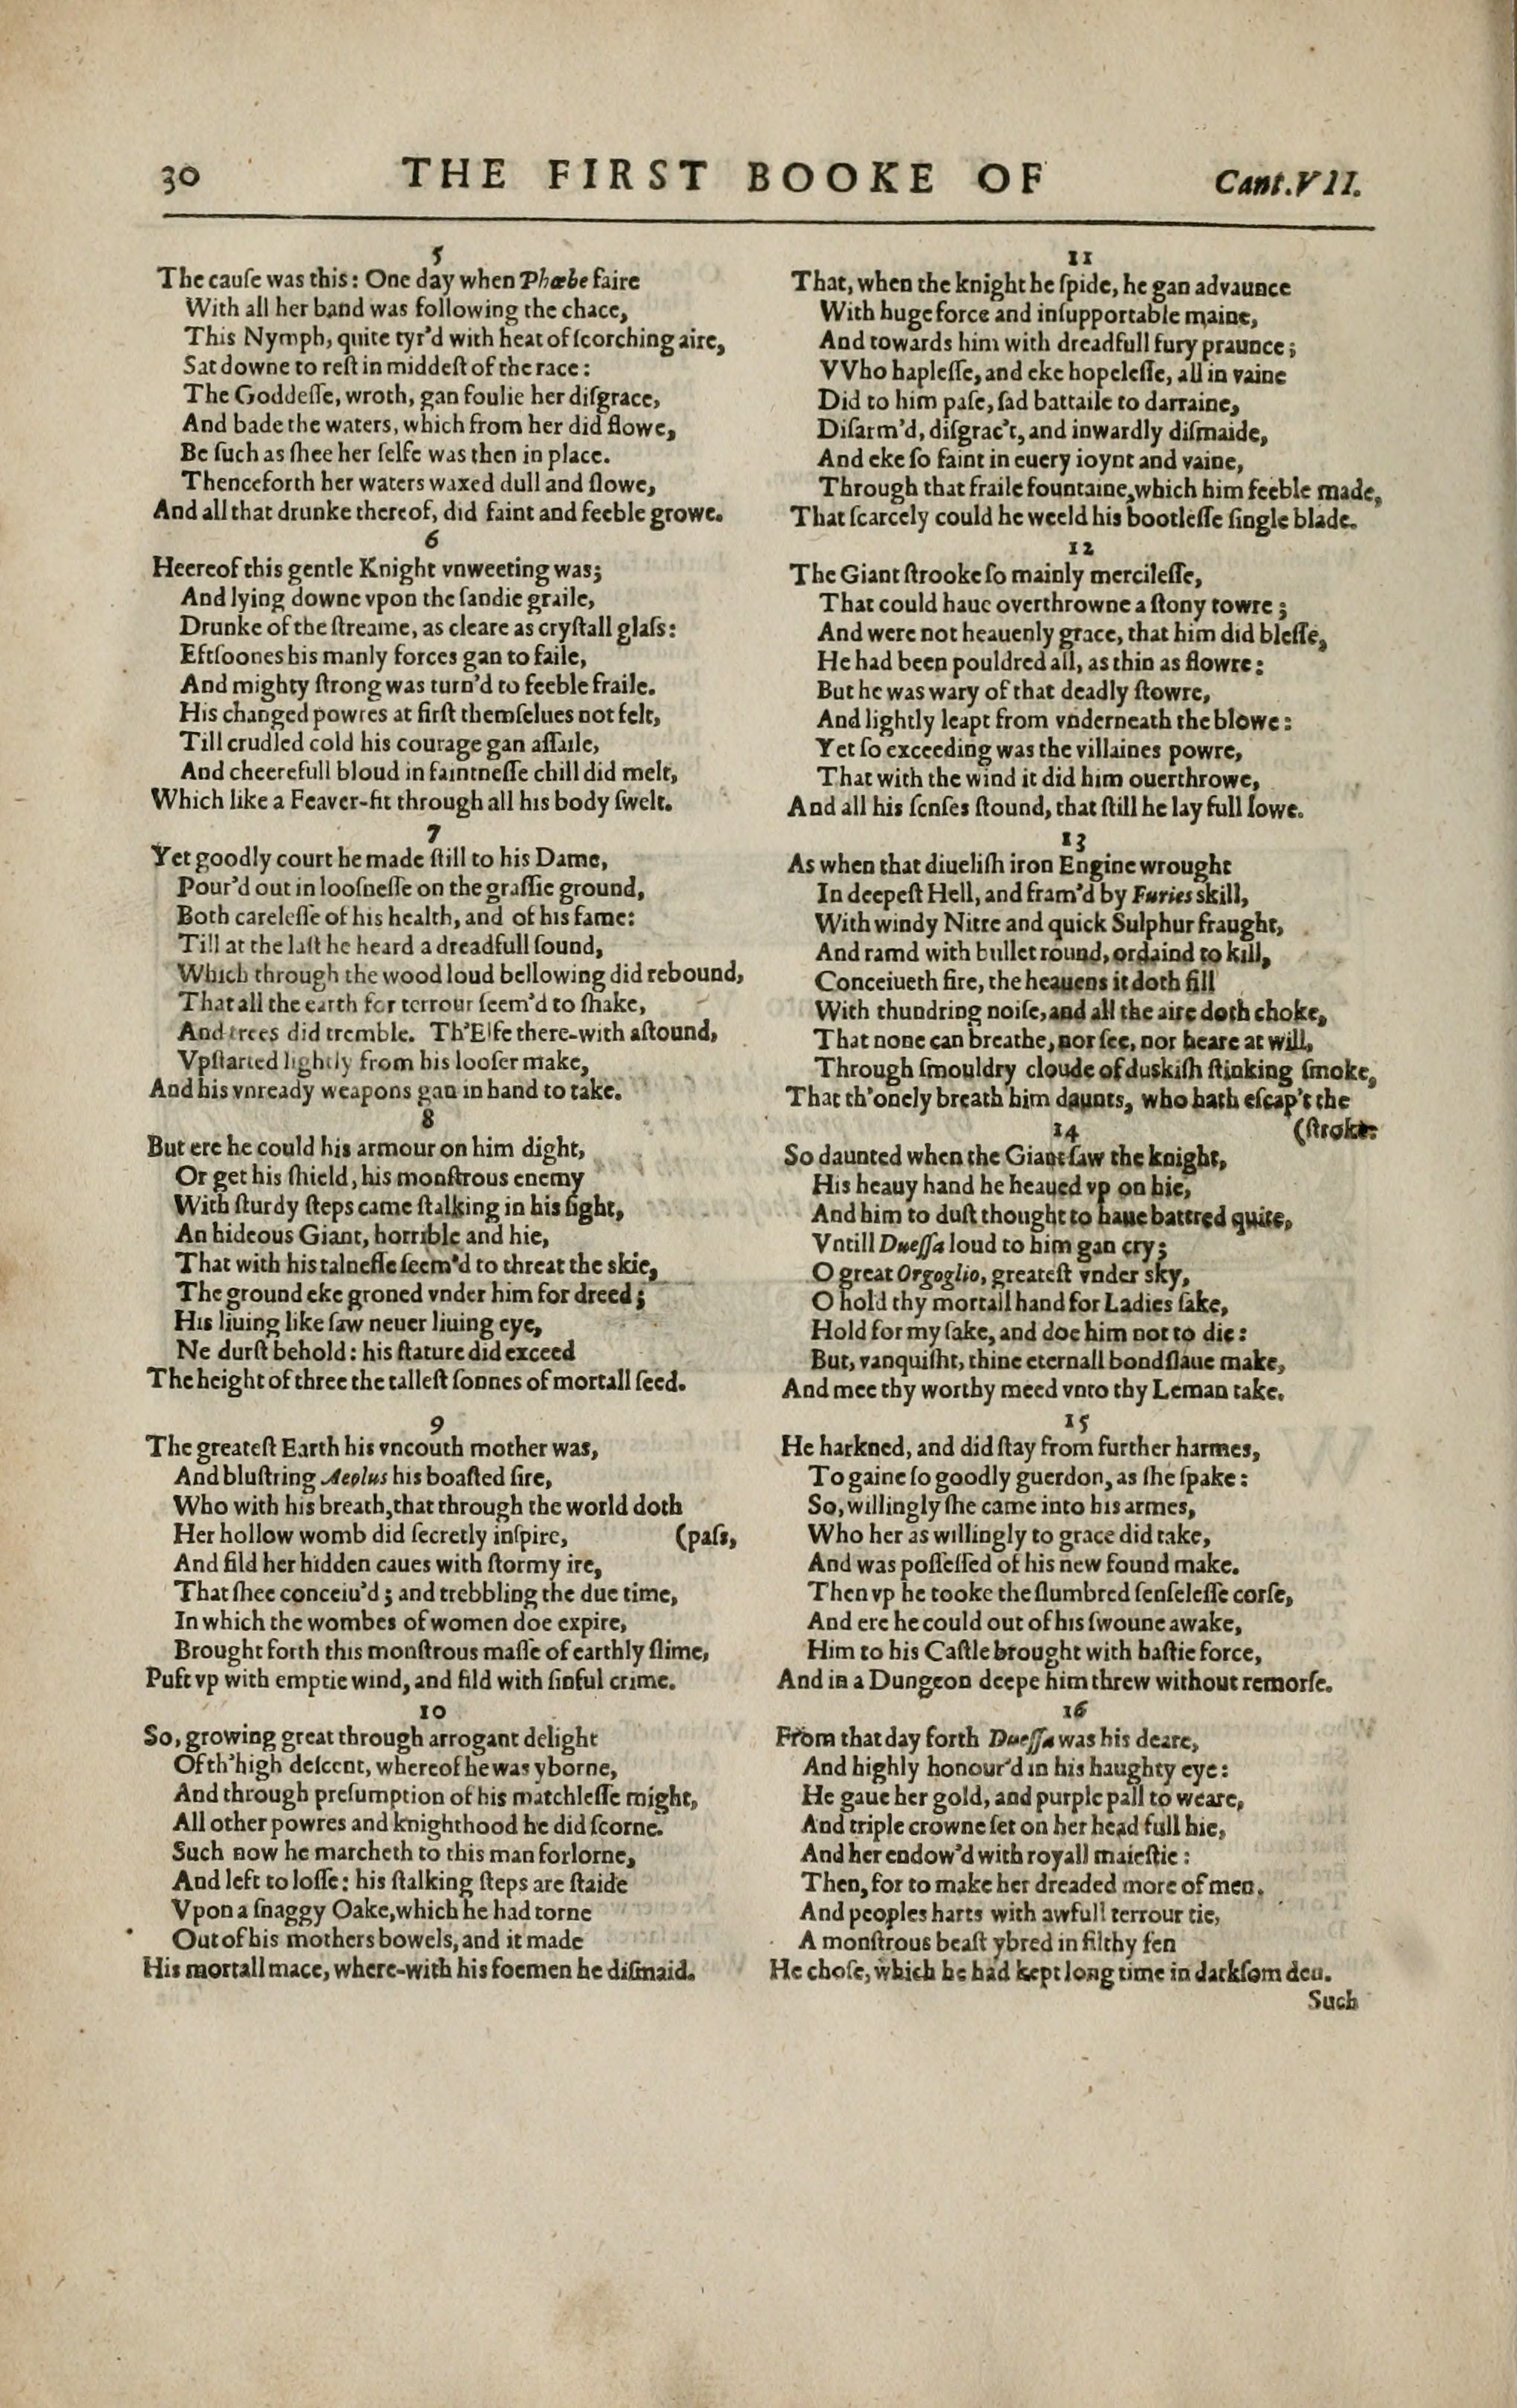 30 THE FIRST BOOKE OF Cant.VII.
5
The cauſe was this: One day when Phœbe faire
With all her band was following the chace,
This Nymph, quite tyr'd with heat of ſcorching aire,
Sat downe to reſt in middeſt of the race:
The Goddeſſe, wroth, gan foulie her diſgrace,
And bade the waters, which from her did flowe,
Be ſuch as ſhee her ſelfe was then in place.
Thenceforth her waters waxed dull and ſlowe,
And all that drunke thereof, did faint and feeble growe.
6
Heereof this gentle Knight vnweeting was;
And lying downe vpon the ſandie graile,
Drunke of the ſtreame, as cleare as cryſtall glaſs:
Eftſoones his manly forces gan to faile,
And mighty ſtrong was turn'd to feeble fraile.
His changed powres at firſt themſelues not felt,
Till crudled cold his courage gan aſſaile,
And cheerefull bloud in faintneſſe chill did melt,
Which like a Feaver-fit through all his body ſwelt.
7
Yet goodly court he made ſtill to his Dame,
Pour'd out in looſneſſe on the graſſie ground,
Both careleſſe of his health, and of his fame:
Till at the laſt he heard a dreadfull ſound,
Which through the wood loud bellowing did rebound,
That all the earth for terrour ſeem'd to ſhake,
And trees did tremble. Th'Elfe there-with aſtound,
Vpſtarted lightly from his looſer make,
And his vnready weapons gan in hand to take.
8
But ere he could his armour on him dight,
Or get his ſhield, his monſtrous enemy
With ſturdy ſteps came ſtalking in his ſight,
An hideous Giant, horrible and hie,
That with his talneſſe ſeem'd to threat the skie,
The ground eke groned vnder him for dreed;
His liuing like ſaw neuer liuing eye,
Ne durſt behold: his ſtature did exceed
The height of three the talleſt ſonnes of mortall ſeed.
9
The greateſt Earth his vncouth mother was,
And bluſtring Aeolus his boaſted ſire,
Who with his breath, that through the world doth
Her hollow womb did ſecretly inſpire, (paſs,
And fild her hidden caues with ſtormy ire,
That ſhee conceiu'd; and trebbling the due time,
In which the wombes of women doe expire,
Brought forth this monſtrous maſſe of earthly ſlime,
Puft vp with emptie wind, and fild with ſinful crime.
10
So, growing great through arrogant delight
Of th'high deſcent, whereof he was yborne,
And through preſumption of his matchleſſe might,
All other powres and knighthood he did ſcorne.
Such now he marcheth to this man forlorne,
And left to loſſe: his ſtalking ſteps are ſtaide
Vpon a ſnaggy Oake, which he had torne
Out of his mothers bowels, and it made
His mortall mace, where-with his foemen he diſmaid.
11
That, when the knight he ſpide, he gan advaunce
With huge force and inſupportable maine,
And towards him with dreadfull fury praunce;
VVho hapleſſe, and eke hopeleſſe, all in vaine
Did to him paſe, ſad battaile to darraine,
Diſarm'd, diſgrac't, and inwardly diſmaide,
And eke ſo faint in euery ioynt and vaine,
Through that fraile fountaine, which him feeble made,
That ſcarcely could he weeld his bootleſſe ſingle blade.
12
The Giant ſtrooke ſo mainly mercileſſe,
That could haue overthrowne a ſtony towre;
And were not heauenly grace, that him did bleſſe,
He had been pouldred all, as thin as flowre:
But he was wary of that deadly ſtowre,
And lightly leapt from vnderneath the blowe:
Yet ſo exceeding was the villaines powre,
That with the wind it did him ouerthrowe,
And all his ſenſes ſtound, that ſtill he lay full lowe.
13
As when that diueliſh iron Engine wrought
In deepeſt Hell, and fram'd by Furies skill,
With windy Nitre and quick Sulphur fraught,
And ramd with bullet round, ordaind to kill,
Conceiueth fire, the heauens it doth fill
With thundring noiſe, and all the aire doth choke,
That none can breathe, nor ſee, nor heare at will,
Through ſmouldry cloude of duskiſh ſtinking ſmoke,
That th'onely breath him daunts, who hath eſcap't the
(ſtroke.
14
So daunted when the Giant ſaw the knight,
His heauy hand he heaued vp on hie,
And him to duſt thought to haue battred quite,
Vntill Dueſſa loud to him gan cry;
O great Orgoglio, greateſt vnder sky,
O hold thy mortall hand for Ladies ſake,
Hold for my ſake, and doe him not to die:
But, vanquiſht, thine eternall bondſlaue make,
And mee thy worthy meed vnto thy Leman take.
15
He harkned, and did ſtay from further harmes,
To gaine ſo goodly guerdon, as ſhe ſpake:
So, willingly ſhe came into his armes,
Who her as willingly to grace did take,
And was poſſeſſed of his new found make.
Then vp he tooke the ſlumbred ſenſeleſſe corſe,
And ere he could out of his ſwoune awake,
Him to his Caſtle brought with haſtie force,
And in a Dungeon deepe him threw without remorſe.
16
From that day forth Dueſſa was his deare,
And highly honour'd in his haughty eye:
He gaue her gold, and purple pall to weare,
And triple crowne ſet on her head full hie,
And her endow'd with royall maieſtie:
Then, for to make her dreaded more of men,
And peoples harts with awfull terrour tie,
A monſtrous beaſt ybred in filthy fen
He choſe, which he had kept long time in darkſom den.
Such